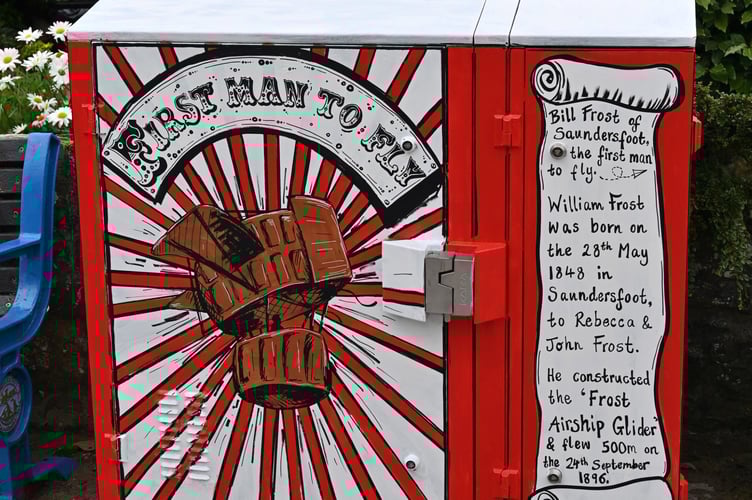 FIRST MAN TO FLY
Bill Frost of
Saundersfoot,
the first man
to fly.
William Frost
was born on
the 28th May
1848 in
Saundersfoot,
to Rebecca &
John Frost.
He constructed
the 'Frost
Airship Glider'
& flew 500m on
the 24th September
1896.